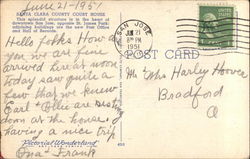 June 21-1951
SANTA CLARA COUNTY COURT HOUSE
This splendid structure is in the heart of
downtown San Jose, opposite St. James Park.
Adjoining buildings are the new Post Office
and Hall of Records.
Hello folks How
you we are fine
arrived here at noon
today saw quite a
few that we knew
Earl & Ollie are
down at the house.
having a nice trip
Frank
Pictorial Wonderland
SAN JOSE
JUN 21
8 PM
1951
POST CARD
Mr Mrs Harley Hoover
Bradford
O